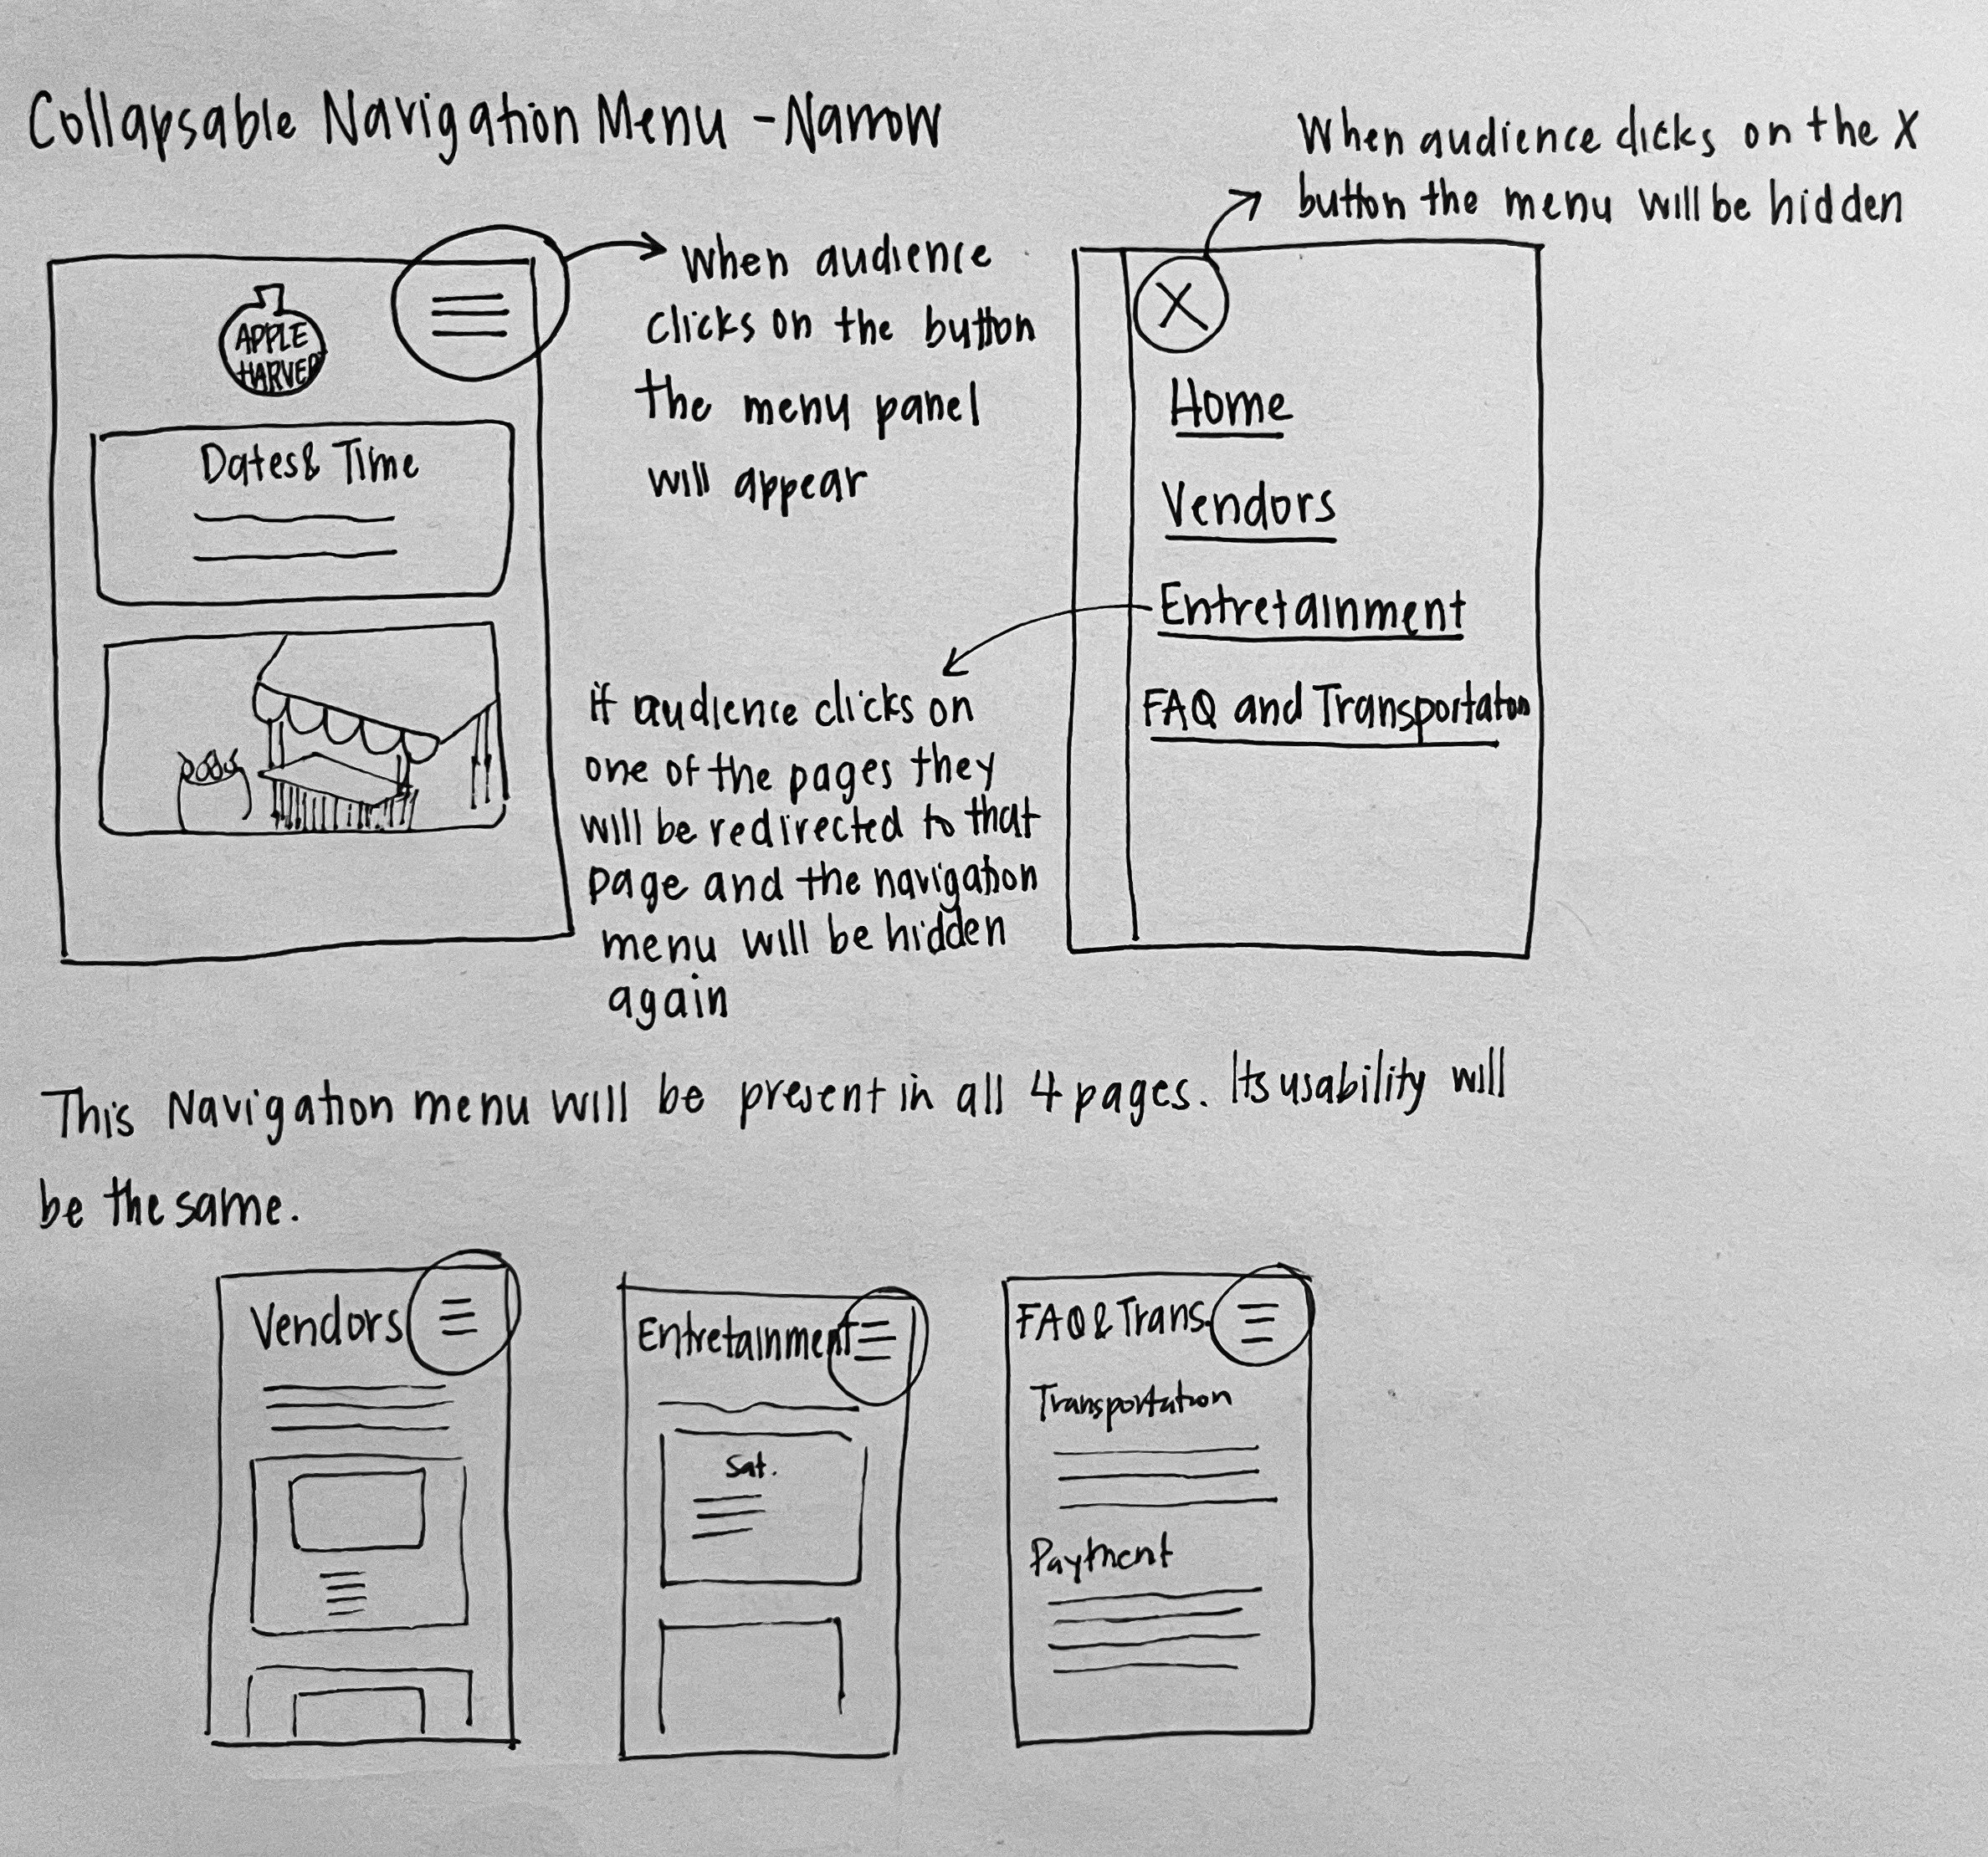 Collapsable Navigation Menu - Narrow
When audience clicks on the X
button the menu will be hidden
APPLE
HARVE
When audience
clicks on the button
the menu panel
will appear
Dates & Time
X
Home
Vendors
Entretainment
FAQ and Transportaton
if audience clicks on
one of the pages they
will be redirected to that
page and the navigation
menu will be hidden
again
This Navigation menu will be present in all 4 pages. Its usability will
be the same.
Vendors
Entretainment
Sat.
FAQ & Trans.
Transportation
Payment